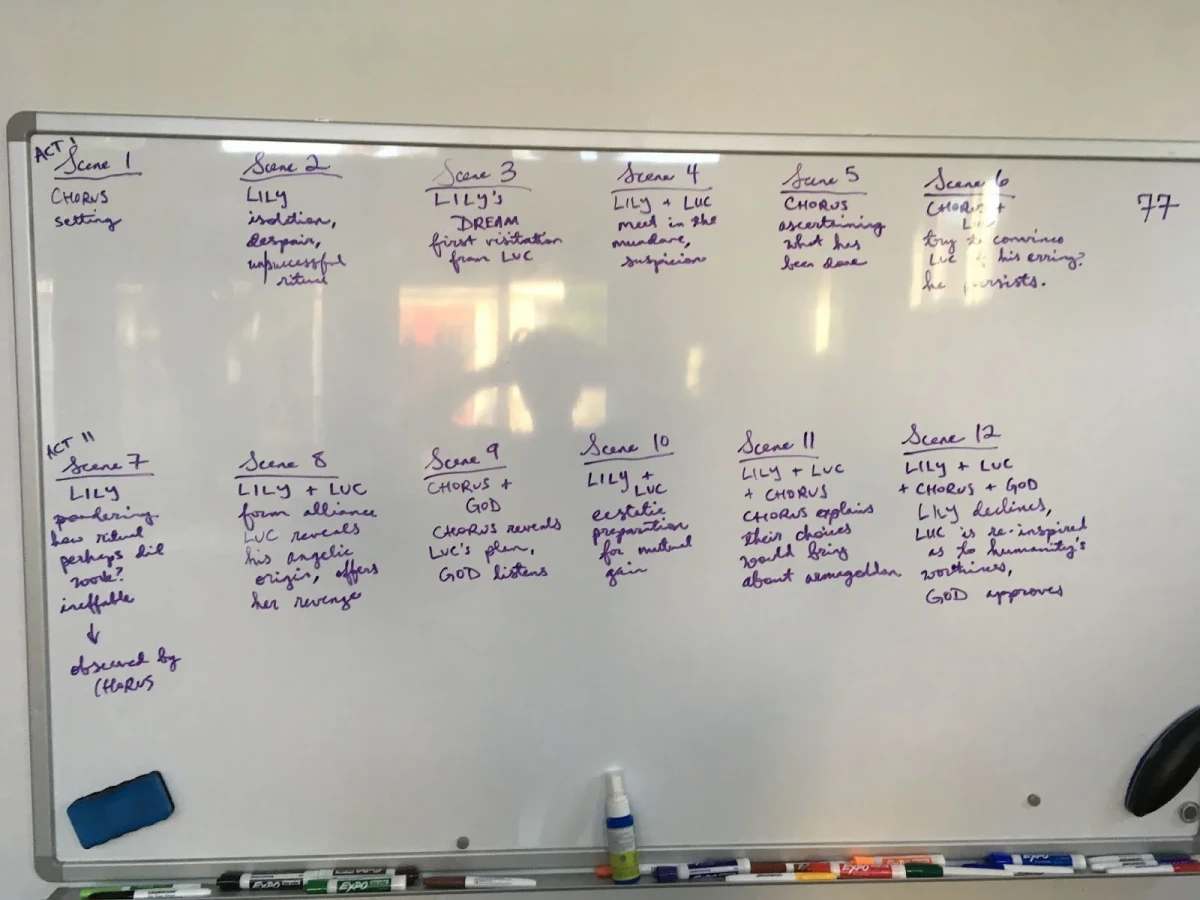 ACT I
Scene 1
CHORUS
setting
Scene 2
LILY
isolation,
despair,
unsuccessful
ritual
Scene 3
LILY's
DREAM
first visitation
from LUC
Scene 4
LILY + LUC
meet in the
mundane,
suspicion
Scene 5
CHORUS
ascertaining
what has
been done
Scene 6
CHORUS +
LUC
try to convince
LUC his erring?
he persists.
77
ACT II
Scene 7
LILY
pondering
how ritual
perhaps did
work?
ineffable
↓
observed by
CHORUS
Scene 8
LILY + LUC
form alliance
LUC reveals
his angelic
origin, offers
her revenge
Scene 9
CHORUS +
GOD
CHORUS reveals
LUC's plan,
GOD listens
Scene 10
LILY +
LUC
ecstatic
preparation
for mutual
gain
Scene 11
LILY + LUC
+ CHORUS
CHORUS explains
their choices
would bring
about armageddon
Scene 12
LILY + LUC
+ CHORUS + GOD
LILY declines,
LUC is re-inspired
as to humanity's
worthiness,
GOD approves
EXPO
EXPO
EXPO
EXPO